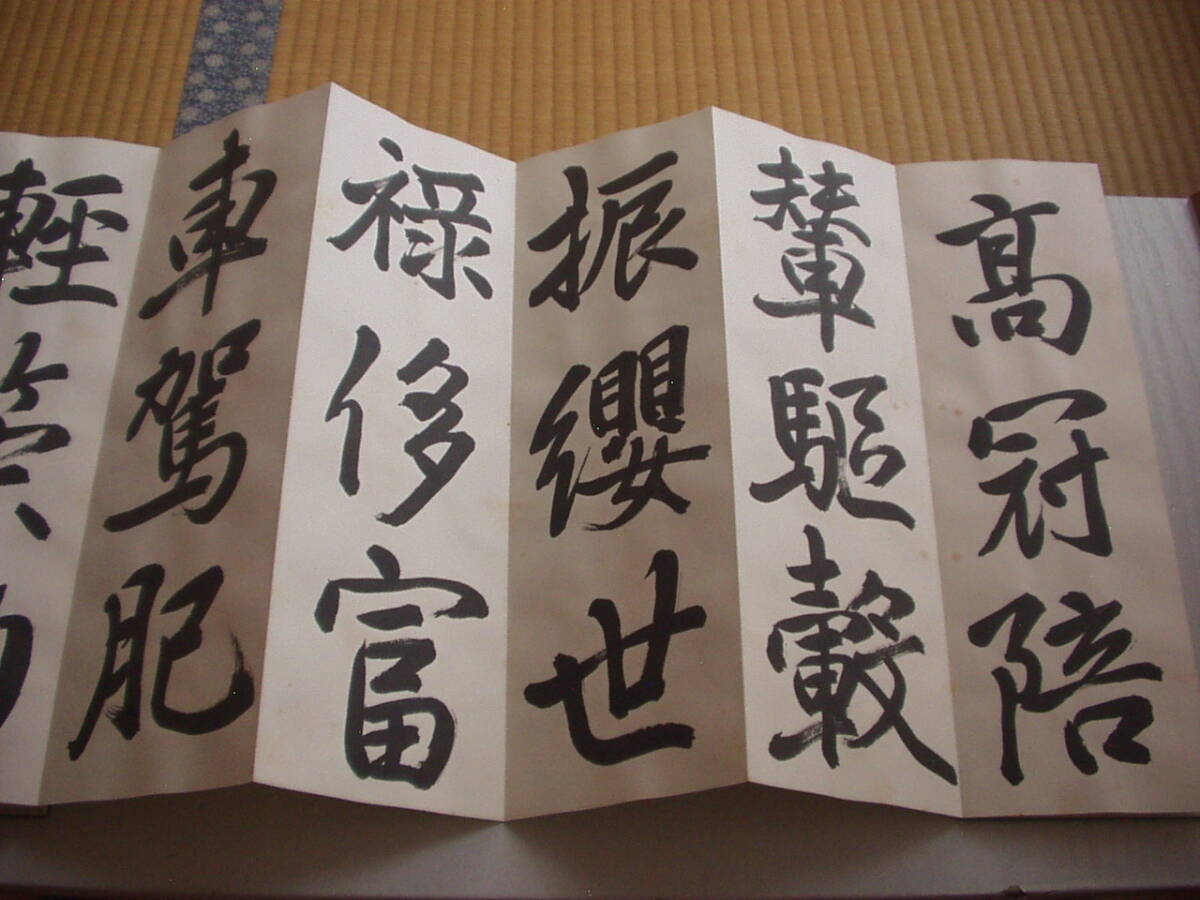 髙冠陪
輦驅轂
振纓世
祿侈富
車駕肥
輕策